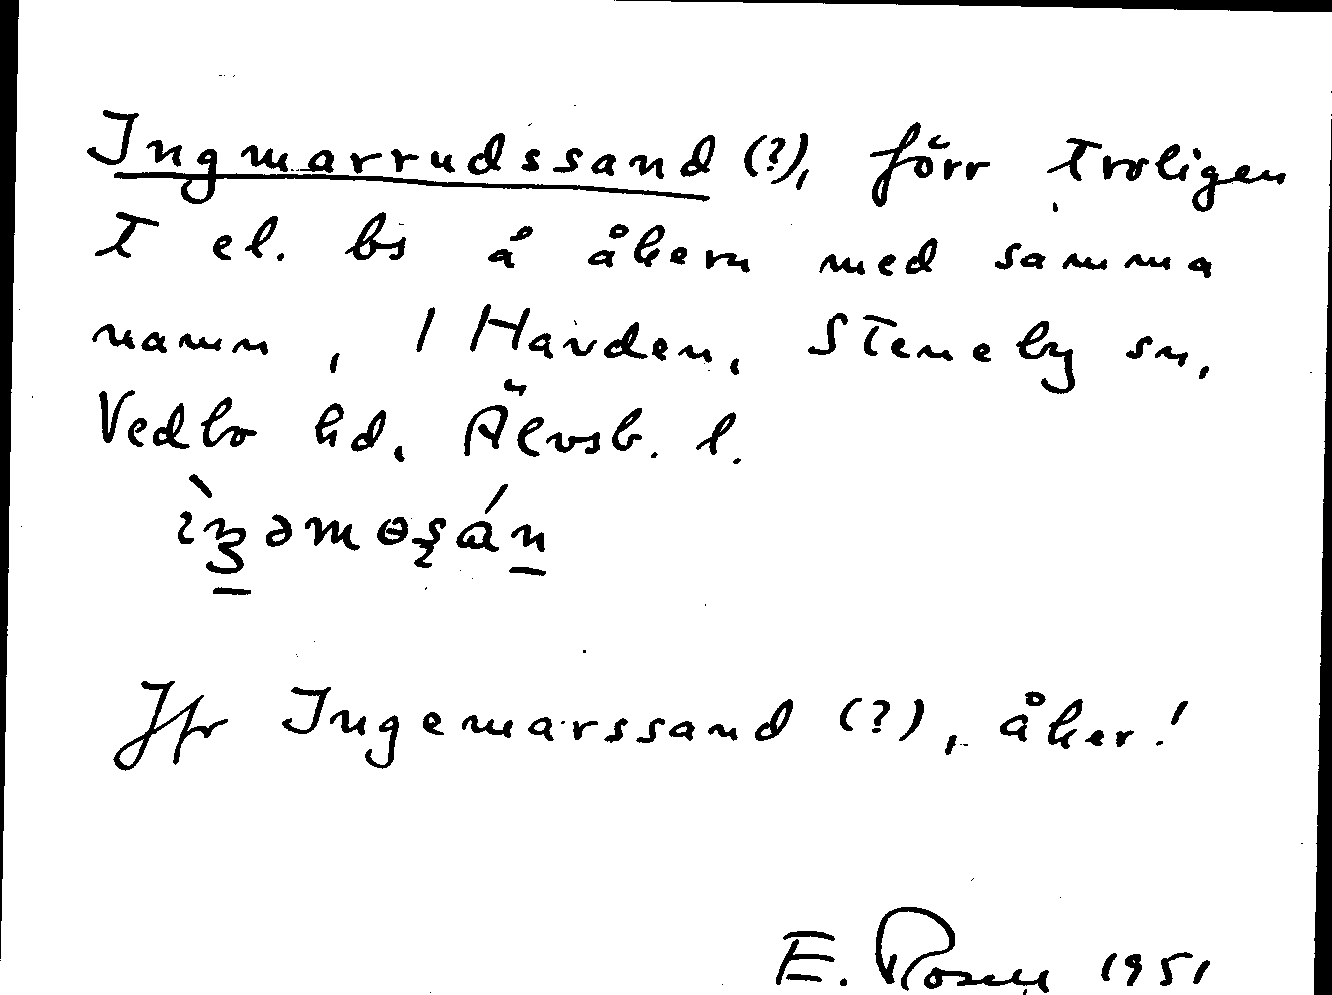 Ingmarrudssand (?), förr troligen
T el. bs å åkern med samma
namn, 1 Havden, Steneby sn,
Vedbo hd, Älvsb. l.
Jfr Ingemarssand (?), åker!
E. Rosell 1951